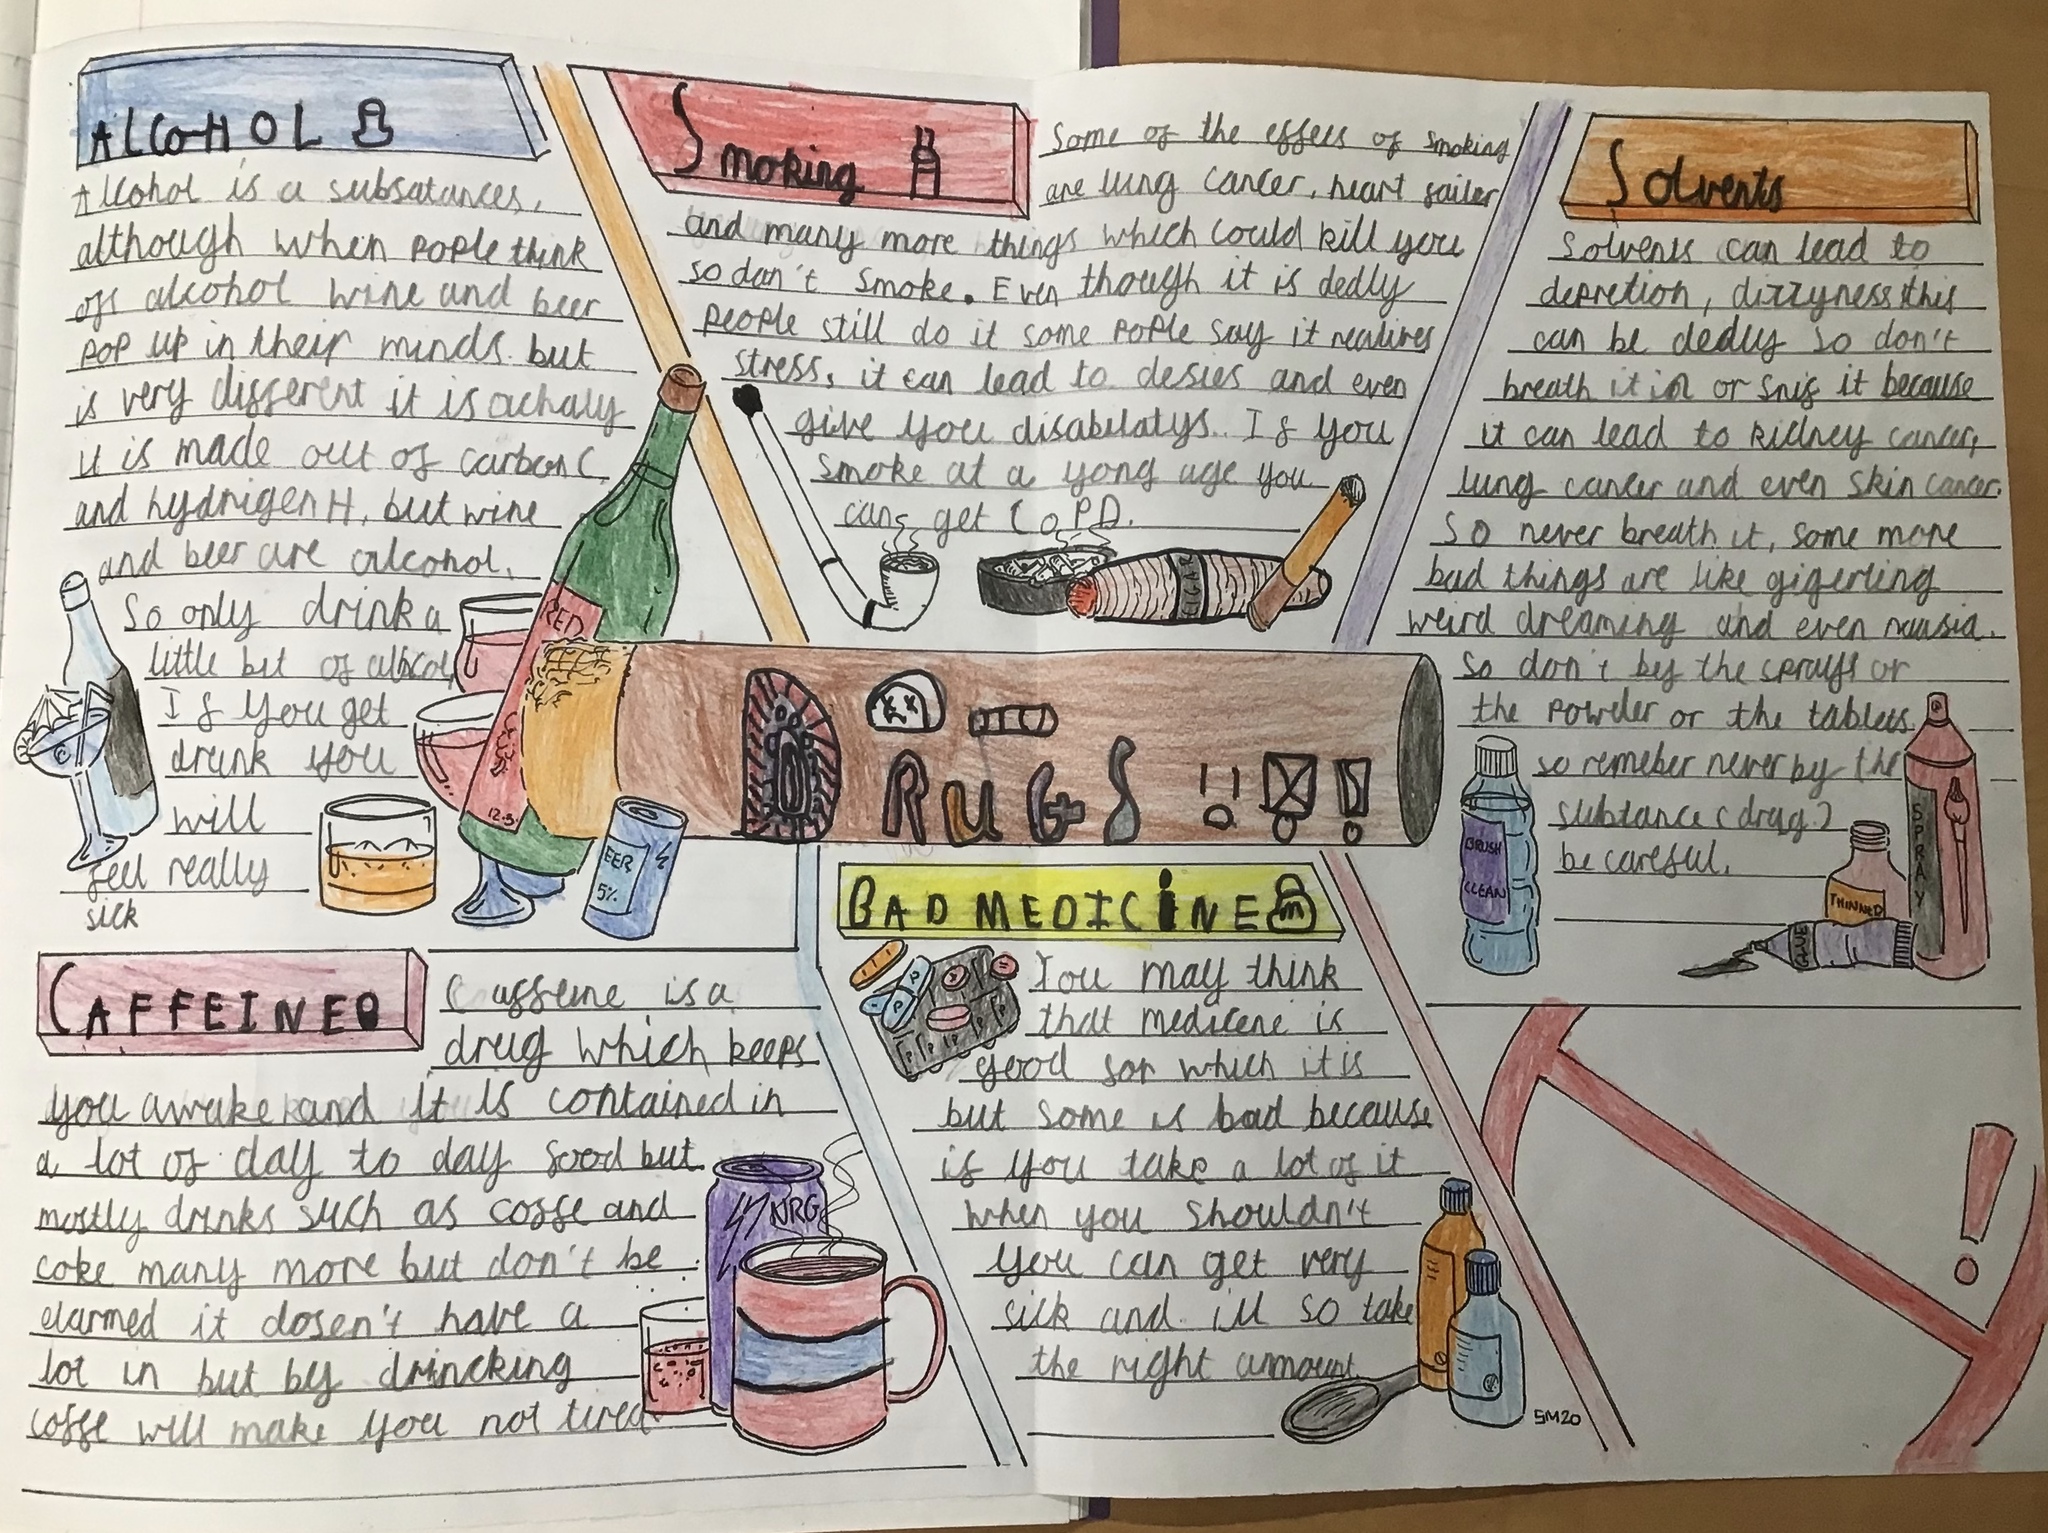 ALCOHOL
Alcohol is a subsatances,
although when pople think
off alcohol wine and beer
pop up in their minds but
is very different it is achaly
it is made out of carbon C
and hydrigen H, but wine
and beer are alcohol.
So only drink a
little bit of
If you get
drunk you
will
feel really
sick
RED
12.5
BEER
5%
Smoking
Some of the effecs of smoking
are lung cancer, heart failer
and many more things which could kill you
so don't smoke. Even though it is dedly
people still do it some pople say it
stress, it can lead to desies and even
give you disabelatys. If you
smoke at a yong age you
can get CoPD.
CIGAR
DRUGS !!!!
Solvents
Solvents can lead to
depretion, dizzyness this
can be dedly so don't
breath it in or snif it because
it can lead to kidney cancer,
lung cancer and even skin cancer.
So never breath it, some more
bad things are like gigerling
weird dreaming and even nausia.
so don't by the sprays or
the powder or the tablets
so remeber never by the
substance (drug)
be careful.
BRUSH
CLEAN
SPRAY
THINNED
GLUE
CAFFEINE
Caffeine is a
drug which keeps
you awake and it is contained in
a lot of day to day food but
mostly drinks such as coffe and
coke many more but don't be
elarmed it dosen't have a
lot in but by drincking
coffe will make you not tired
NRG
BAD MEDICINE
You may think
that medicene is
good for which it is
but some is bad because
if you take a lot of it
when you shouldn't
you can get very
sick and ill so take
the right ammount
SM20
!